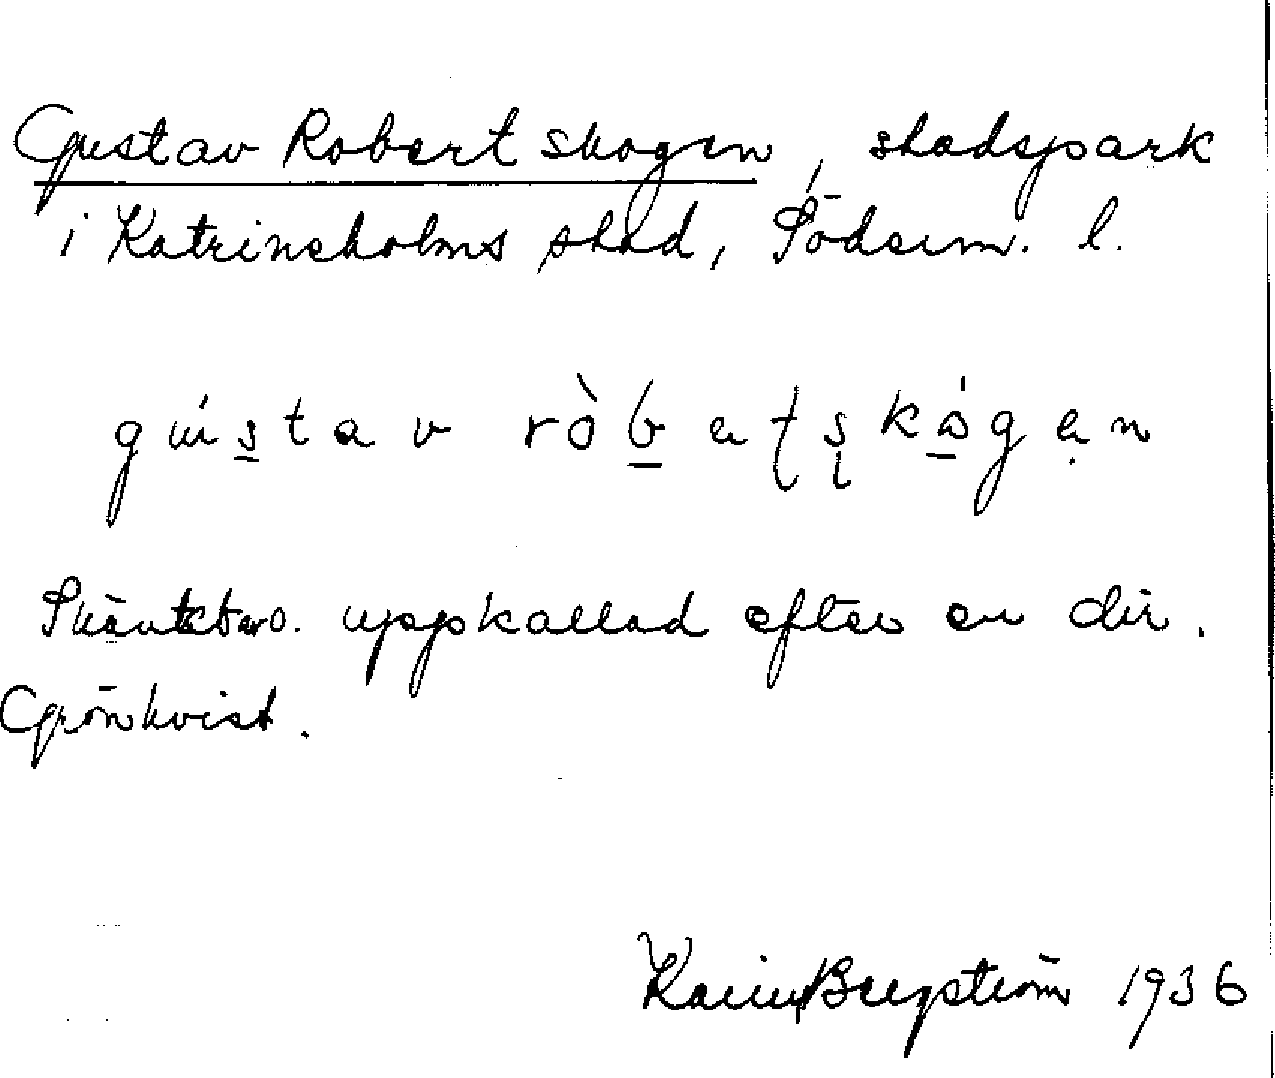 Gustav Robertskogen, stadspark
i Katrineholms stad, Söderm. l.
gústav ròbeʈʂkógen
Skänkt o. uppkallad efter en dir.
Grönkvist.
Karin Bergström 1936